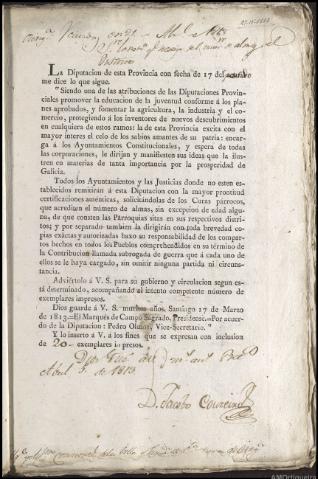 LA Diputacion de esta Provincia con fecha de 17 del
me dice lo que sigue.
"Siendo una de las atribuciones de las Diputaciones Provin-
ciales promover la educacion de la juventud conforme á los pla-
nes aprobados, y fomentar la agricultura, la industria y el co-
mercio, protegiendo á los inventores de nuevos descubrimientos
en cualquiera de estos ramos: la de esta Provincia excita con el
mayor interes el celo de los sabios amantes de su patria: encar-
ga á los Ayuntamientos Constitucionales, y espera de todas
las corporaciones, le dirijan y manifiesten sus ideas que la ilus-
tren en materias de tanta importancia por la prosperidad de
Galicia.
Todos los Ayuntamientos y las Justicias donde no esten es-
tablecidos remitirán á esta Diputacion con la mayor prontitud
certificaciones auténticas, solicitándolas de los Curas párrocos,
que acrediten el número de almas, sin excepcion de edad algu-
na, de que consten las Parroquias sitas en sus respectivos distri-
tos; y por separado tambien la dirigirán con toda brevedad co-
pias exáctas y autorizadas baxo su responsabilidad de los compar-
tos hechos en todos los Pueblos comprehendidos en su término de
la Contribucion llamada subrogada de guerra que á cada uno de
ellos se le haya cargado, sin omitir ninguna partida ni circuns-
tancia.
Adviértolo á V. S. para su gobierno y circulacion segun es-
tá determinado, acompañando al intento competente número de
exemplares impresos.
Dios guarde á V. S. muchos años. Santiago 17 de Marzo
de 1813.=El Marqués de Campo Sagrado, Presidente.=Por acuer-
do de la Diputacion: Pedro Vice-Secretario."
Y lo inserto á V. á los fines que se expresan con inclusion
de 20 exemplares impresos.
Dios
Abril 5. de 1813.
D. Jacobo
AMOrtigueira